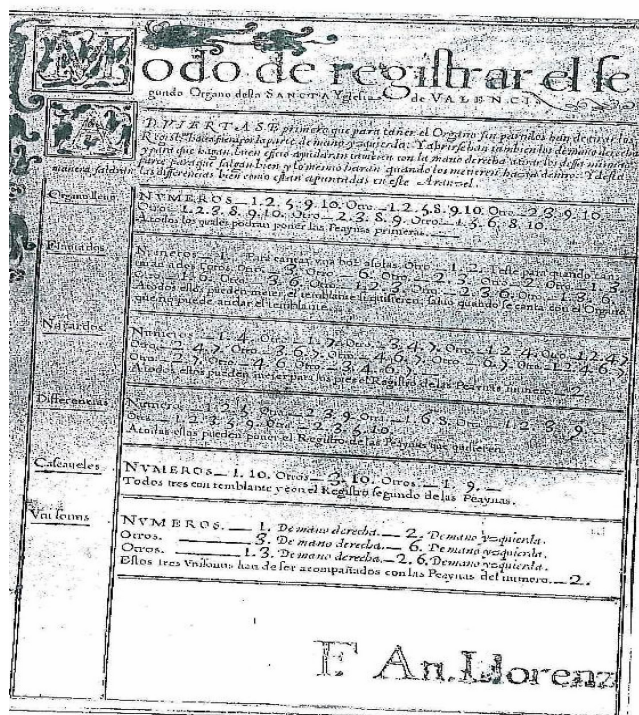 Modo de registrar el se
gundo Organo desta SANCTA Yglesia de VALENCIA
ADVIERTASE primero que para tañer el Organo sin partidos han de tirar los
Registros hazia fuera por la parte de mano yzquierda. Y abrirse han tambien los de mano derecha
y para que hagan buen efecto ayudaran tambien con la mano derecha a tirarlos desta misma
parte para que salgan bien y lo mismo haran quando los metieren hazia dentro. Y desta
manera saldran las differencias bien como estan apuntadas en este Aranzel.
Organo lleno
NVMEROS — 1. 2. 5. 9. 10. Otro — 1. 2. 5. 8. 9. 10. Otro — 2. 3. 9. 10.
Otro — 1. 2. 3. 8. 9. 10. Otro — 2. 3. 8. 9. Otro — 1. 3. 6. 8. 10. —
A todos los quales podran poner las Peaynas primeras.
Flautados
Numeros — 1. Para cantar una boz a solas. Otro — 1. 2. Y este para quando
Otro — 3. Otro — 6. Otro — 2. 3. Otro — 2. Otro — 1. 3.
Otro — 3. 6. Otro — 1. 2. 3. Otro — 2. 3. 6. Otro — 1. 3. 6.
A todos ellos pueden meter el temblante si quisieren, salvo quando se canta con el Organo
que no puede andar el temblante.
Nasardos
Numeros — 1. 4. Otro — 1. 7. Otro — 3. 4. 7. Otro — 1. 2. 4. Otro — 1. 2. 4. 7.
Otro — 2. 4. 7. Otro — 3. 6. 7. Otro — 4. 6. 7. Otro — 6. 7. Otro — 1. 2. 4. 6. 7.
Otro — 2. 7. Otro — 4. 6. Otro — 3. 4. 6. 7. —
A todos estos pueden meter para los pies el Registro de las Peaynas numero — 2.
Differencias
Numeros — 1. 2. 5. Otro — 2. 3. 9. Otro — 1. 6. 8. Otro — 1. 2. 8. 9. —
Otro — 1. 2. 3. 5. 9. Otro — 2. 3. 5. 10.
A todas ellas pueden poner el Registro de las Peaynas que quisieren.
Cascaueles
NVMEROS — 1. 10. Otros — 3. 10. Otros — 1. 9. —
Todos tres con temblante y con el Registro segundo de las Peaynas.
Vnisonus
NVMEROS. — 1. De mano derecha. — 2. De mano yzquierda.
Otros. — 3. De mano derecha. — 6. De mano yzquierda.
Otros. — 1. 3. De mano derecha. — 2. 6. De mano yzquierda.
Estos tres Vnisonus han de ser acompañados con las Peaynas del numero. — 2.
F An. Llorenz